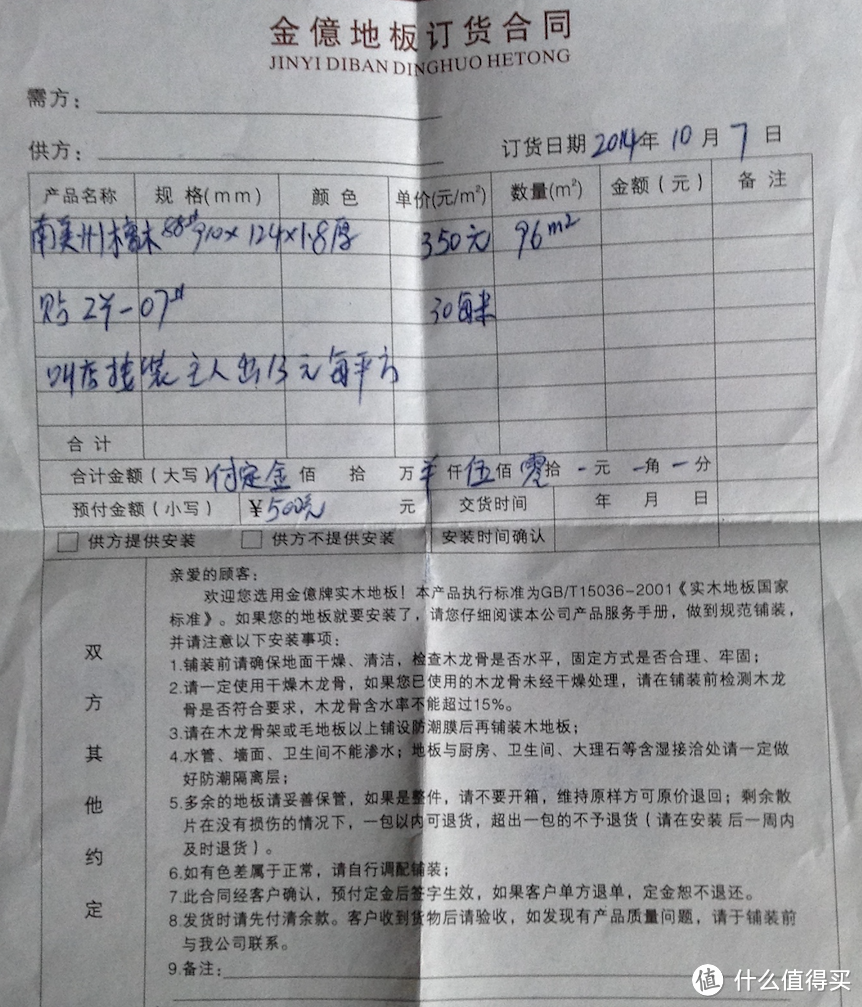 金億地板订货合同
JINYI DIBAN DINGHUO HETONG
需方：
供方： 订货日期 2014年 10月 7日
产品名称 规 格(mm) 颜 色 单价(元/m²) 数量(m²) 金额(元) 备 注
南美洲橡木 88# 910×124×1.8厚 350元 96m²
贴 2Y-07# 30每米
叫店 装 主人出13元每平方
合 计
合计金额(大写) 付定金 佰 拾 万 仟 伍佰 零拾 元 角 分
预付金额(小写) ¥500元 元 交货时间 年 月 日
供方提供安装 供方不提供安装 安装时间确认
双方其他约定
亲爱的顾客：
欢迎您选用金億牌实木地板！本产品执行标准为GB/T15036-2001《实木地板国家
标准》。如果您的地板就要安装了，请您仔细阅读本公司产品服务手册，做到规范铺装，
并请注意以下安装事项：
1.铺装前请确保地面干燥、清洁，检查木龙骨是否水平，固定方式是否合理、牢固；
2.请一定使用干燥木龙骨，如果您已使用的木龙骨未经干燥处理，请在铺装前检测木龙
骨是否符合要求，木龙骨含水率不能超过15%。
3.请在木龙骨架或毛地板以上铺设防潮膜后再铺装木地板；
4.水管、墙面、卫生间不能渗水；地板与厨房、卫生间、大理石等含湿接洽处请一定做
好防潮隔离层；
5.多余的地板请妥善保管，如果是整件，请不要开箱，维持原样方可原价退回；剩余散
片在没有损伤的情况下，一包以内可退货，超出一包的不予退货（请在安装后一周内
及时退货）。
6.如有色差属于正常，请自行调配铺装；
7.此合同经客户确认，预付定金后签字生效，如果客户单方退单，定金恕不退还。
8.发货时请先付清余款。客户收到货物后请验收，如发现有产品质量问题，请于铺装前
与我公司联系。
9.备注：
值 什么值得买